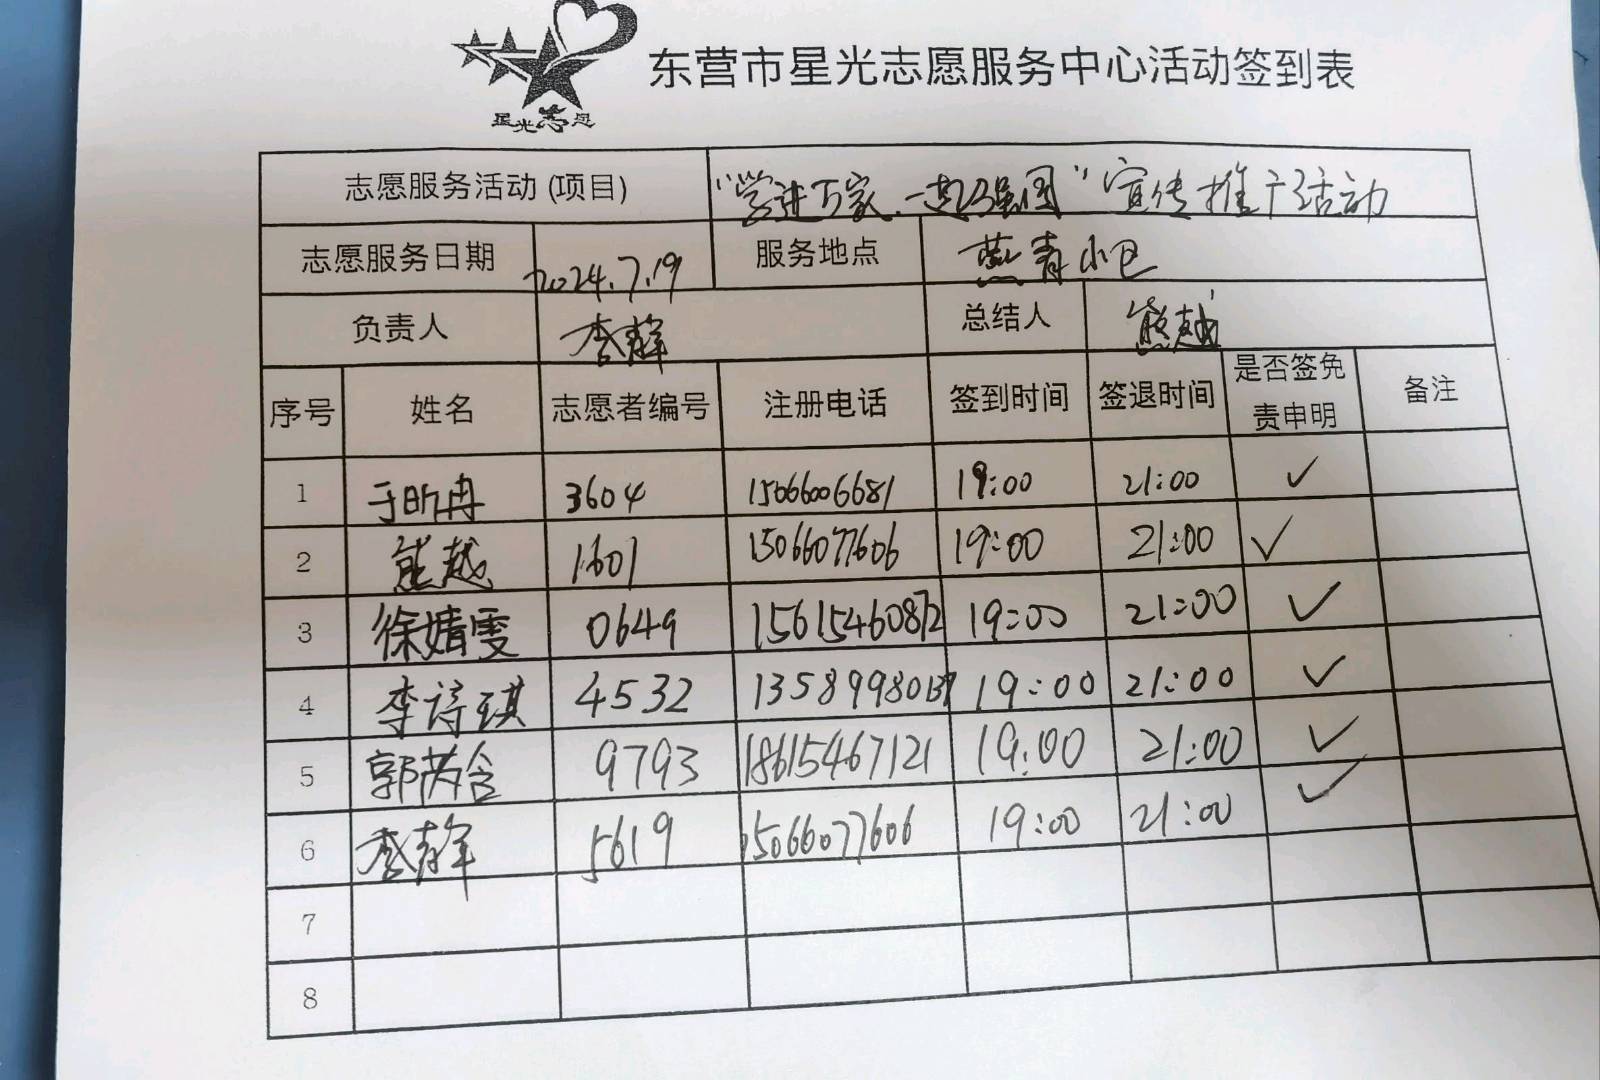 星光志愿
东营市星光志愿服务中心活动签到表
志愿服务活动(项目) “学进万家、一起强国”宣传推广活动
志愿服务日期 2024.7.19 服务地点 燕青小巴
负责人 李静 总结人 熊越
序号 姓名 志愿者编号 注册电话 签到时间 签退时间 是否签免责申明 备注
1 于昕冉 3604 15066006681 19:00 21:00 ✓
2 熊越 1601 15066077606 19:00 21:00 ✓
3 徐婧雯 0649 15615460872 19:00 21:00 ✓
4 李诗琪 4532 19:00 21:00 ✓
5 郭芮含 9793 18615467121 19:00 21:00 ✓
6 李静 5619 15066077606 19:00 21:00 ✓
7
8